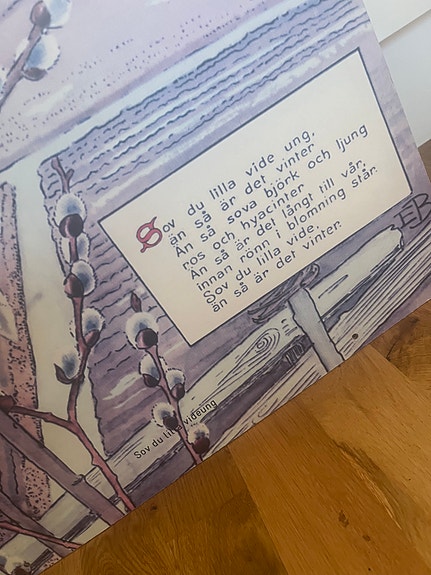 Sov du lilla vide ung,
än så är det vinter.
Än så sova björk och ljung
ros och hyacinter.
Än så är det långt till vår,
innan rönn i blomning står.
Sov du lilla vide,
än så är det vinter.
EB
Sov du lilla videung